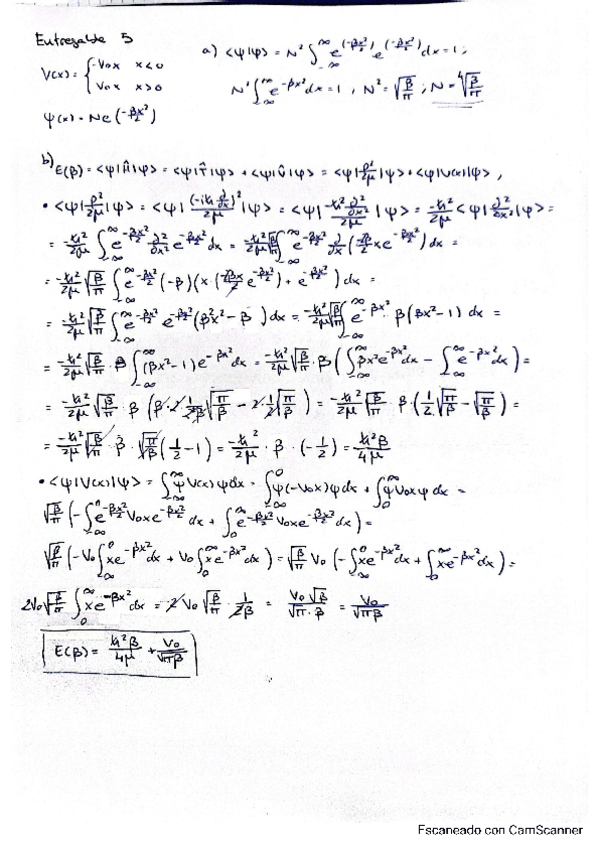 Entregable 5
V(x) = { -V₀x x<0
V₀x x>0
ψ(x) = N e^(-βx²/2)
a) <ψ|ψ> = N² ∫_{-∞}^{∞} e^(-βx²/2) e^(-βx²/2) dx = 1;
N² ∫_{-∞}^{∞} e^{-βx²} dx = 1, N² = √(β/π); N = ⁴√(β/π)
b) E(β) = <ψ|Ĥ|ψ> = <ψ|T̂|ψ> + <ψ|Û|ψ> = <ψ|p²/2μ|ψ> + <ψ|V(x)|ψ>,
• <ψ|p²/2μ|ψ> = <ψ|(-iħ ∂/∂x)²/2μ|ψ> = <ψ|-ħ²/2μ ∂²/∂x²|ψ> = -ħ²/2μ <ψ|∂²/∂x²|ψ> =
= -ħ²/2μ ∫_{-∞}^{∞} e^{-βx²/2} ∂²/∂x² e^{-βx²/2} dx = -ħ²/2μ √(β/π) ∫_{-∞}^{∞} e^{-βx²/2} ∂/∂x (-2β/2 x e^{-βx²/2}) dx =
= -ħ²/2μ √(β/π) ∫_{-∞}^{∞} e^{-βx²/2} (-β)(x·(-2βx/2 e^{-βx²/2}) + e^{-βx²/2}) dx =
= -ħ²/2μ √(β/π) ∫_{-∞}^{∞} e^{-βx²/2} e^{-βx²/2} (β²x² - β) dx = -ħ²/2μ √(β/π) ∫_{-∞}^{∞} e^{-βx²} β(βx²-1) dx =
= -ħ²/2μ √(β/π) · β ∫_{-∞}^{∞} (βx²-1) e^{-βx²} dx = -ħ²/2μ √(β/π) · β (∫_{-∞}^{∞} βx² e^{-βx²} dx - ∫_{-∞}^{∞} e^{-βx²} dx) =
= -ħ²/2μ √(β/π) · β (β·2·1/(2·2β) √(π/β) - 2·1/2 √(π/β)) = -ħ²/2μ √(β/π) · β · (1/2 √(π/β) - √(π/β)) =
= -ħ²/2μ √(β/π) · β · √(π/β) (1/2 - 1) = -ħ²/2μ · β · (-1/2) = ħ²β/4μ
• <ψ|V(x)|ψ> = ∫_{-∞}^{∞} ψ V(x) ψ dx = ∫_{-∞}^{0} ψ(-V₀x)ψ dx + ∫_{0}^{∞} ψ V₀x ψ dx =
√(β/π) (-∫_{-∞}^{0} e^{-βx²/2} V₀x e^{-βx²/2} dx + ∫_{0}^{∞} e^{-βx²/2} V₀x e^{-βx²/2} dx) =
√(β/π) (-V₀ ∫_{-∞}^{0} x e^{-βx²} dx + V₀ ∫_{0}^{∞} x e^{-βx²} dx) = √(β/π) V₀ (-∫_{-∞}^{0} x e^{-βx²} dx + ∫_{0}^{∞} x e^{-βx²} dx) =
2V₀ √(β/π) ∫_{0}^{∞} x e^{-βx²} dx = 2 V₀ √(β/π) · 1/2β = V₀√β/(√π·β) = V₀/√(πβ)
E(β) = ħ²β/4μ + V₀/√(πβ)
Escaneado con CamScanner